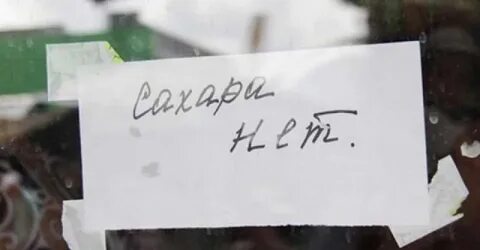 Сахара
нет.